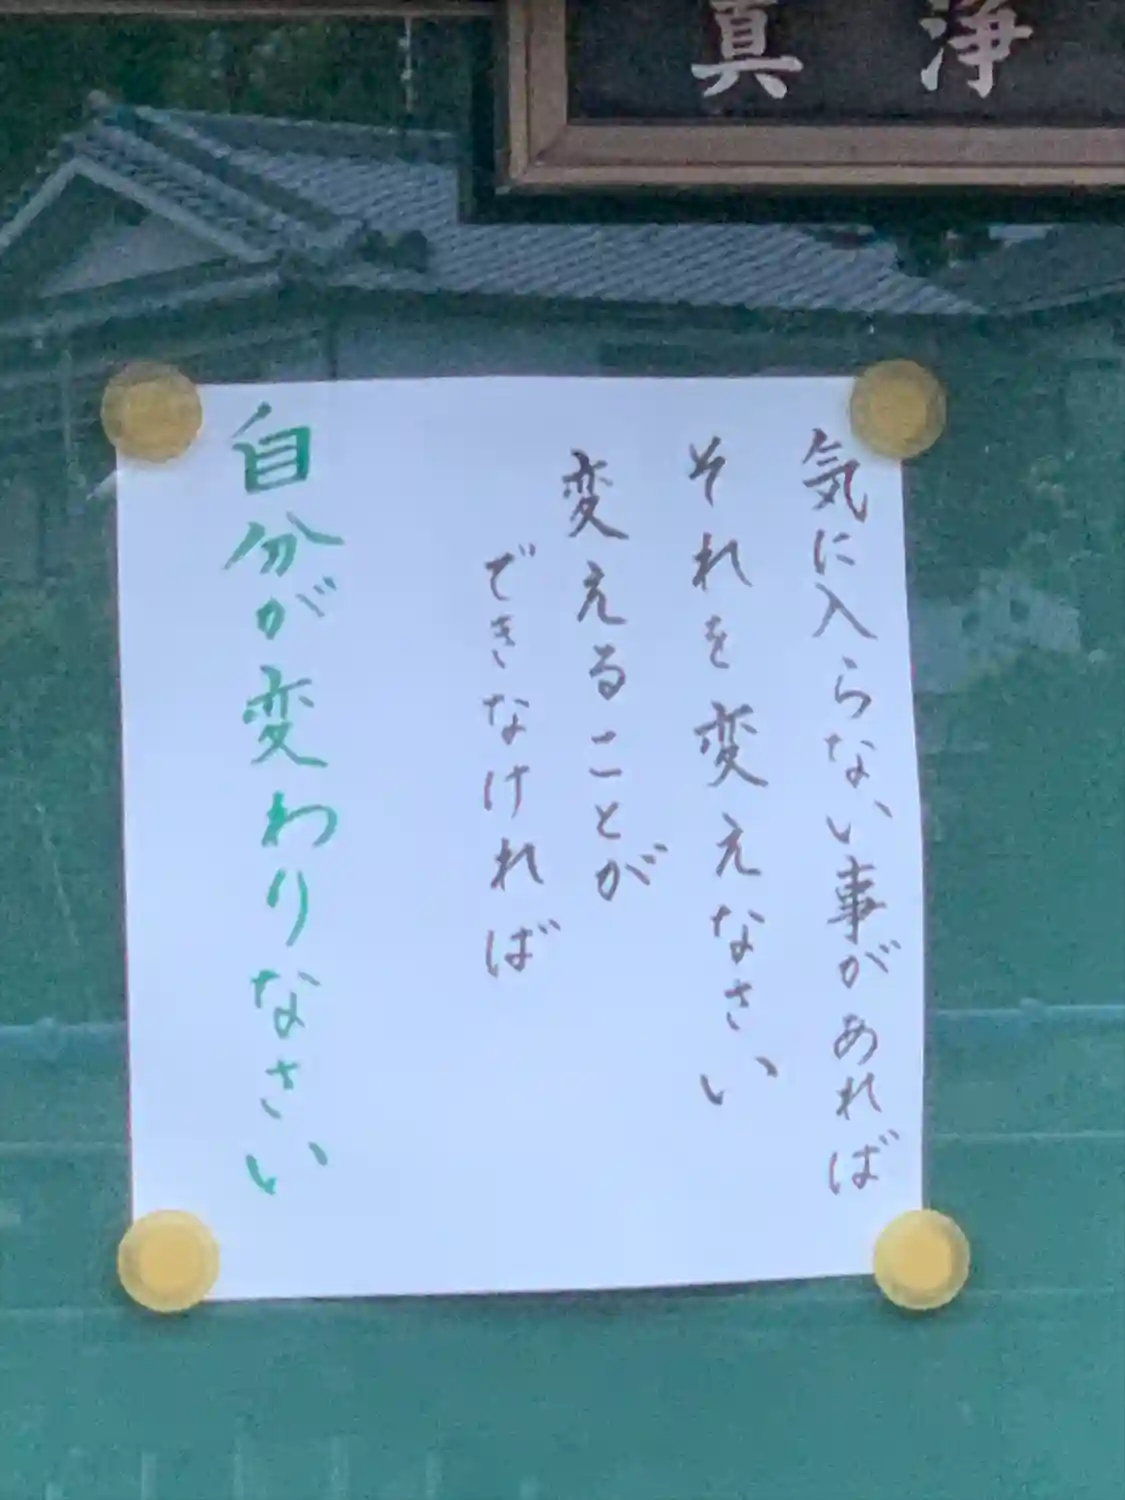 浄真
気に入らない事があれば
それを変えなさい
変えることが
できなければ
自分が変わりなさい